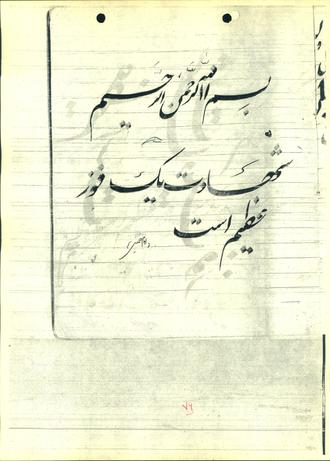 بسم الله الرحمن الرحیم
شهادت یک فوز
عظیم است
۷۶